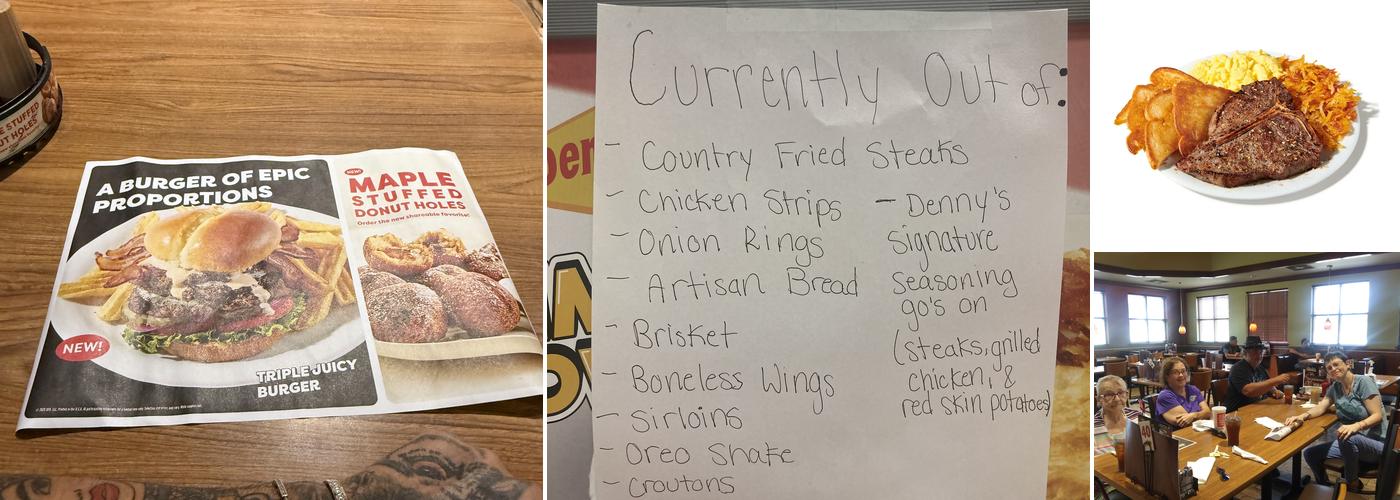 E STUFFED
UT HOLES
A BURGER OF EPIC
PROPORTIONS
NEW!
TRIPLE JUICY
BURGER
NEW!
MAPLE
STUFFED
DONUT HOLES
Order the new shareable favorite!
Currently Out of:
- Country Fried Steaks
- Chicken Strips
- Onion Rings
- Artisan Bread
- Brisket
- Boneless Wings
- Sirloins
- Oreo Shake
- Croutons
- Denny's
Signature
Seasoning
go's on
(steaks, grilled
chicken, &
red skin potatoes)
per
40